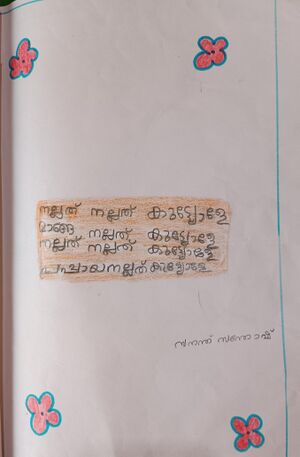 നല്ലത് നല്ലത് കുട്ട്യോളേ
മാങ്ങ നല്ലത് കുട്ട്യോളേ
നല്ലത് നല്ലത് കുട്ട്യോളേ
നല്ലത് കുട്ട്യോളേ
സനന്ത് സന്തോഷ്